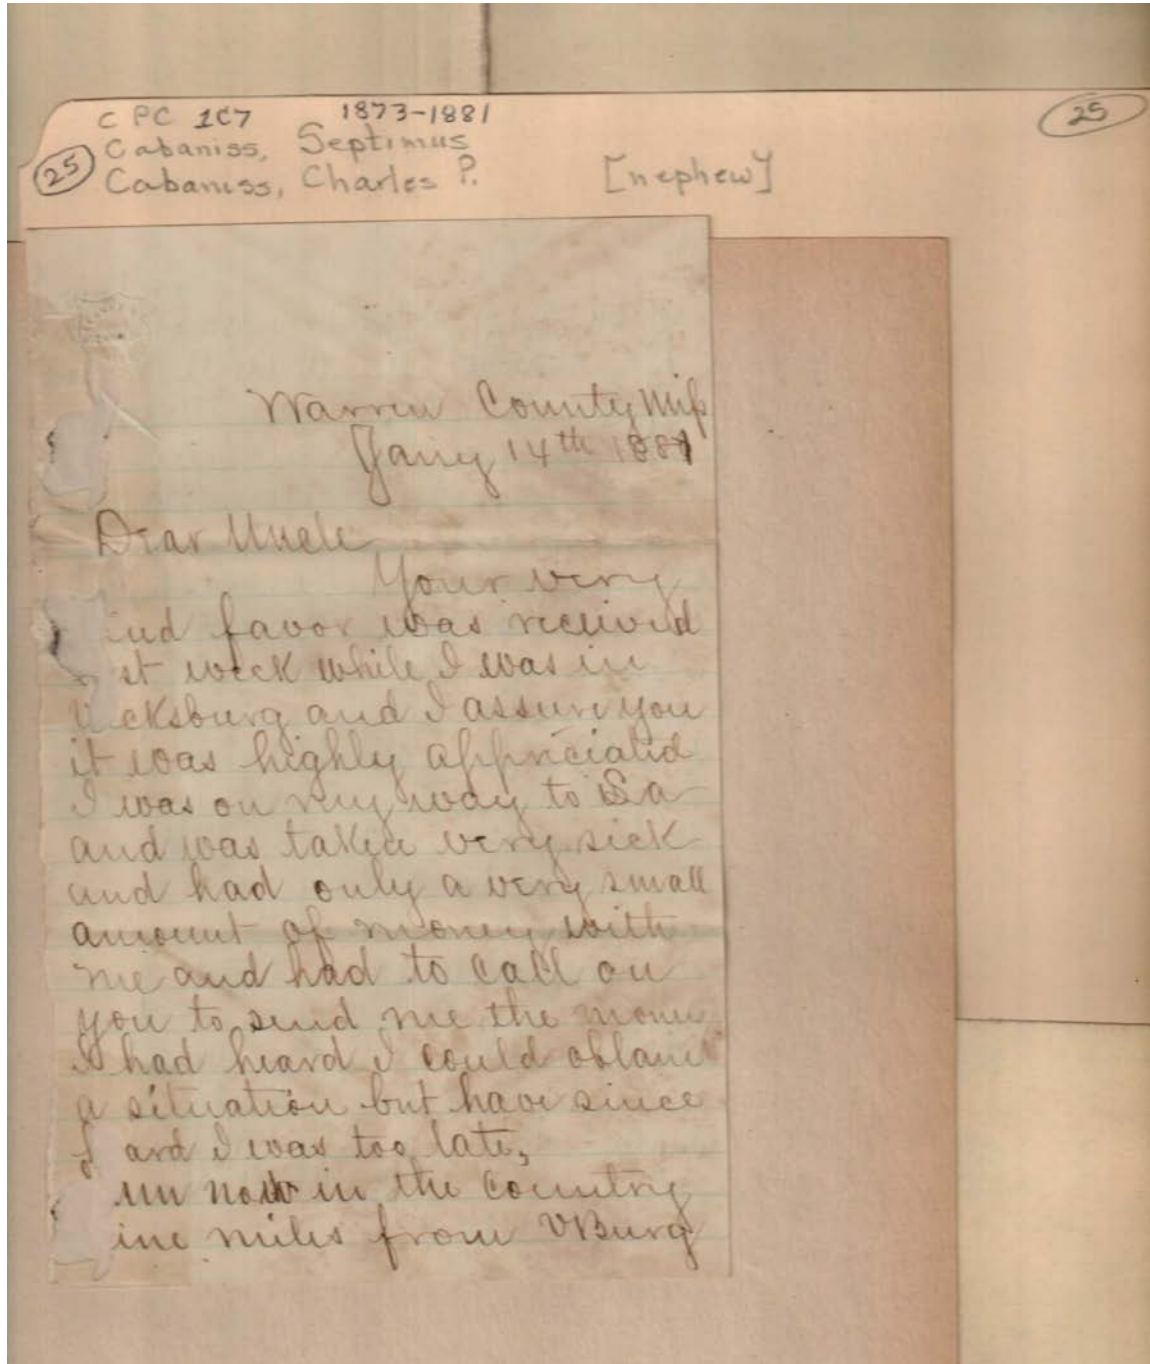 C PC 1C7 1873-1881
25
Cabaniss, Septimus
25 Cabaniss, Charles P. [nephew]
Warren County Miss
Jany 14th 1881
Dear Uncle
Your very
ind favor was received
st week while I was in
V cksburg and I assure you
it was highly appreciated
I was on my way to La
and was taken very sick
and had only a very small
amount of money with
me and had to call on
you to send me the mone
I had heard I could obtain
a situation but have since
ard I was too late,
am now in the country
ine miles from VBurg